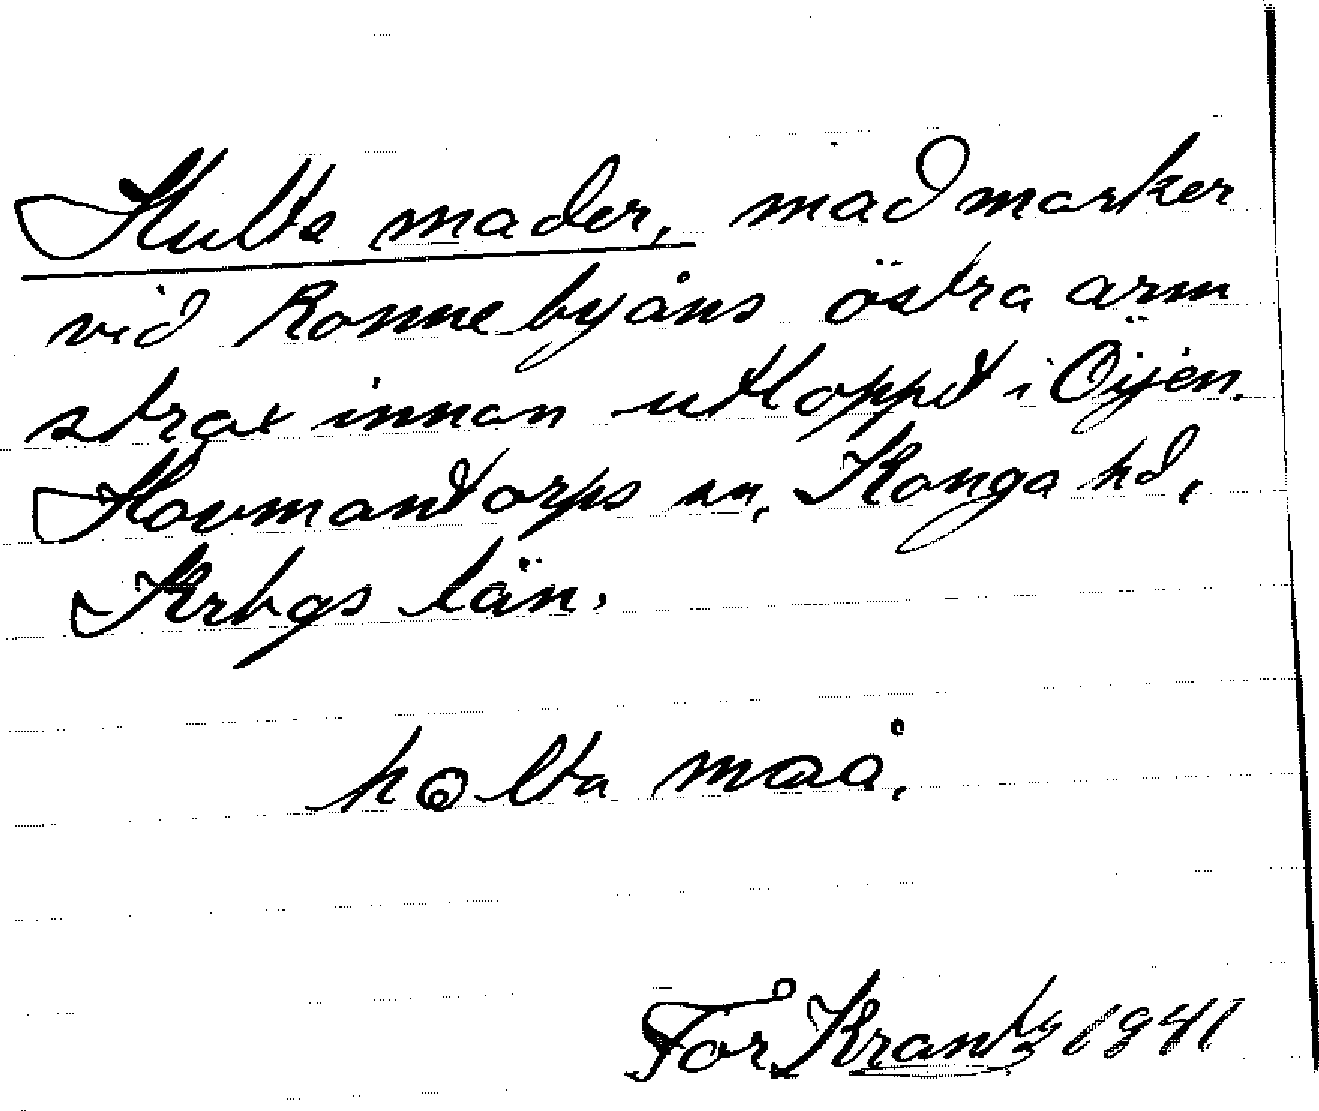 Hulta mader, madmarker
vid Ronnebyåns östra arm
strax innan utloppet i Öijen.
Hovmantorps sn, Konga hd,
Krbgs län.
hølta maa.
Krantz 1941